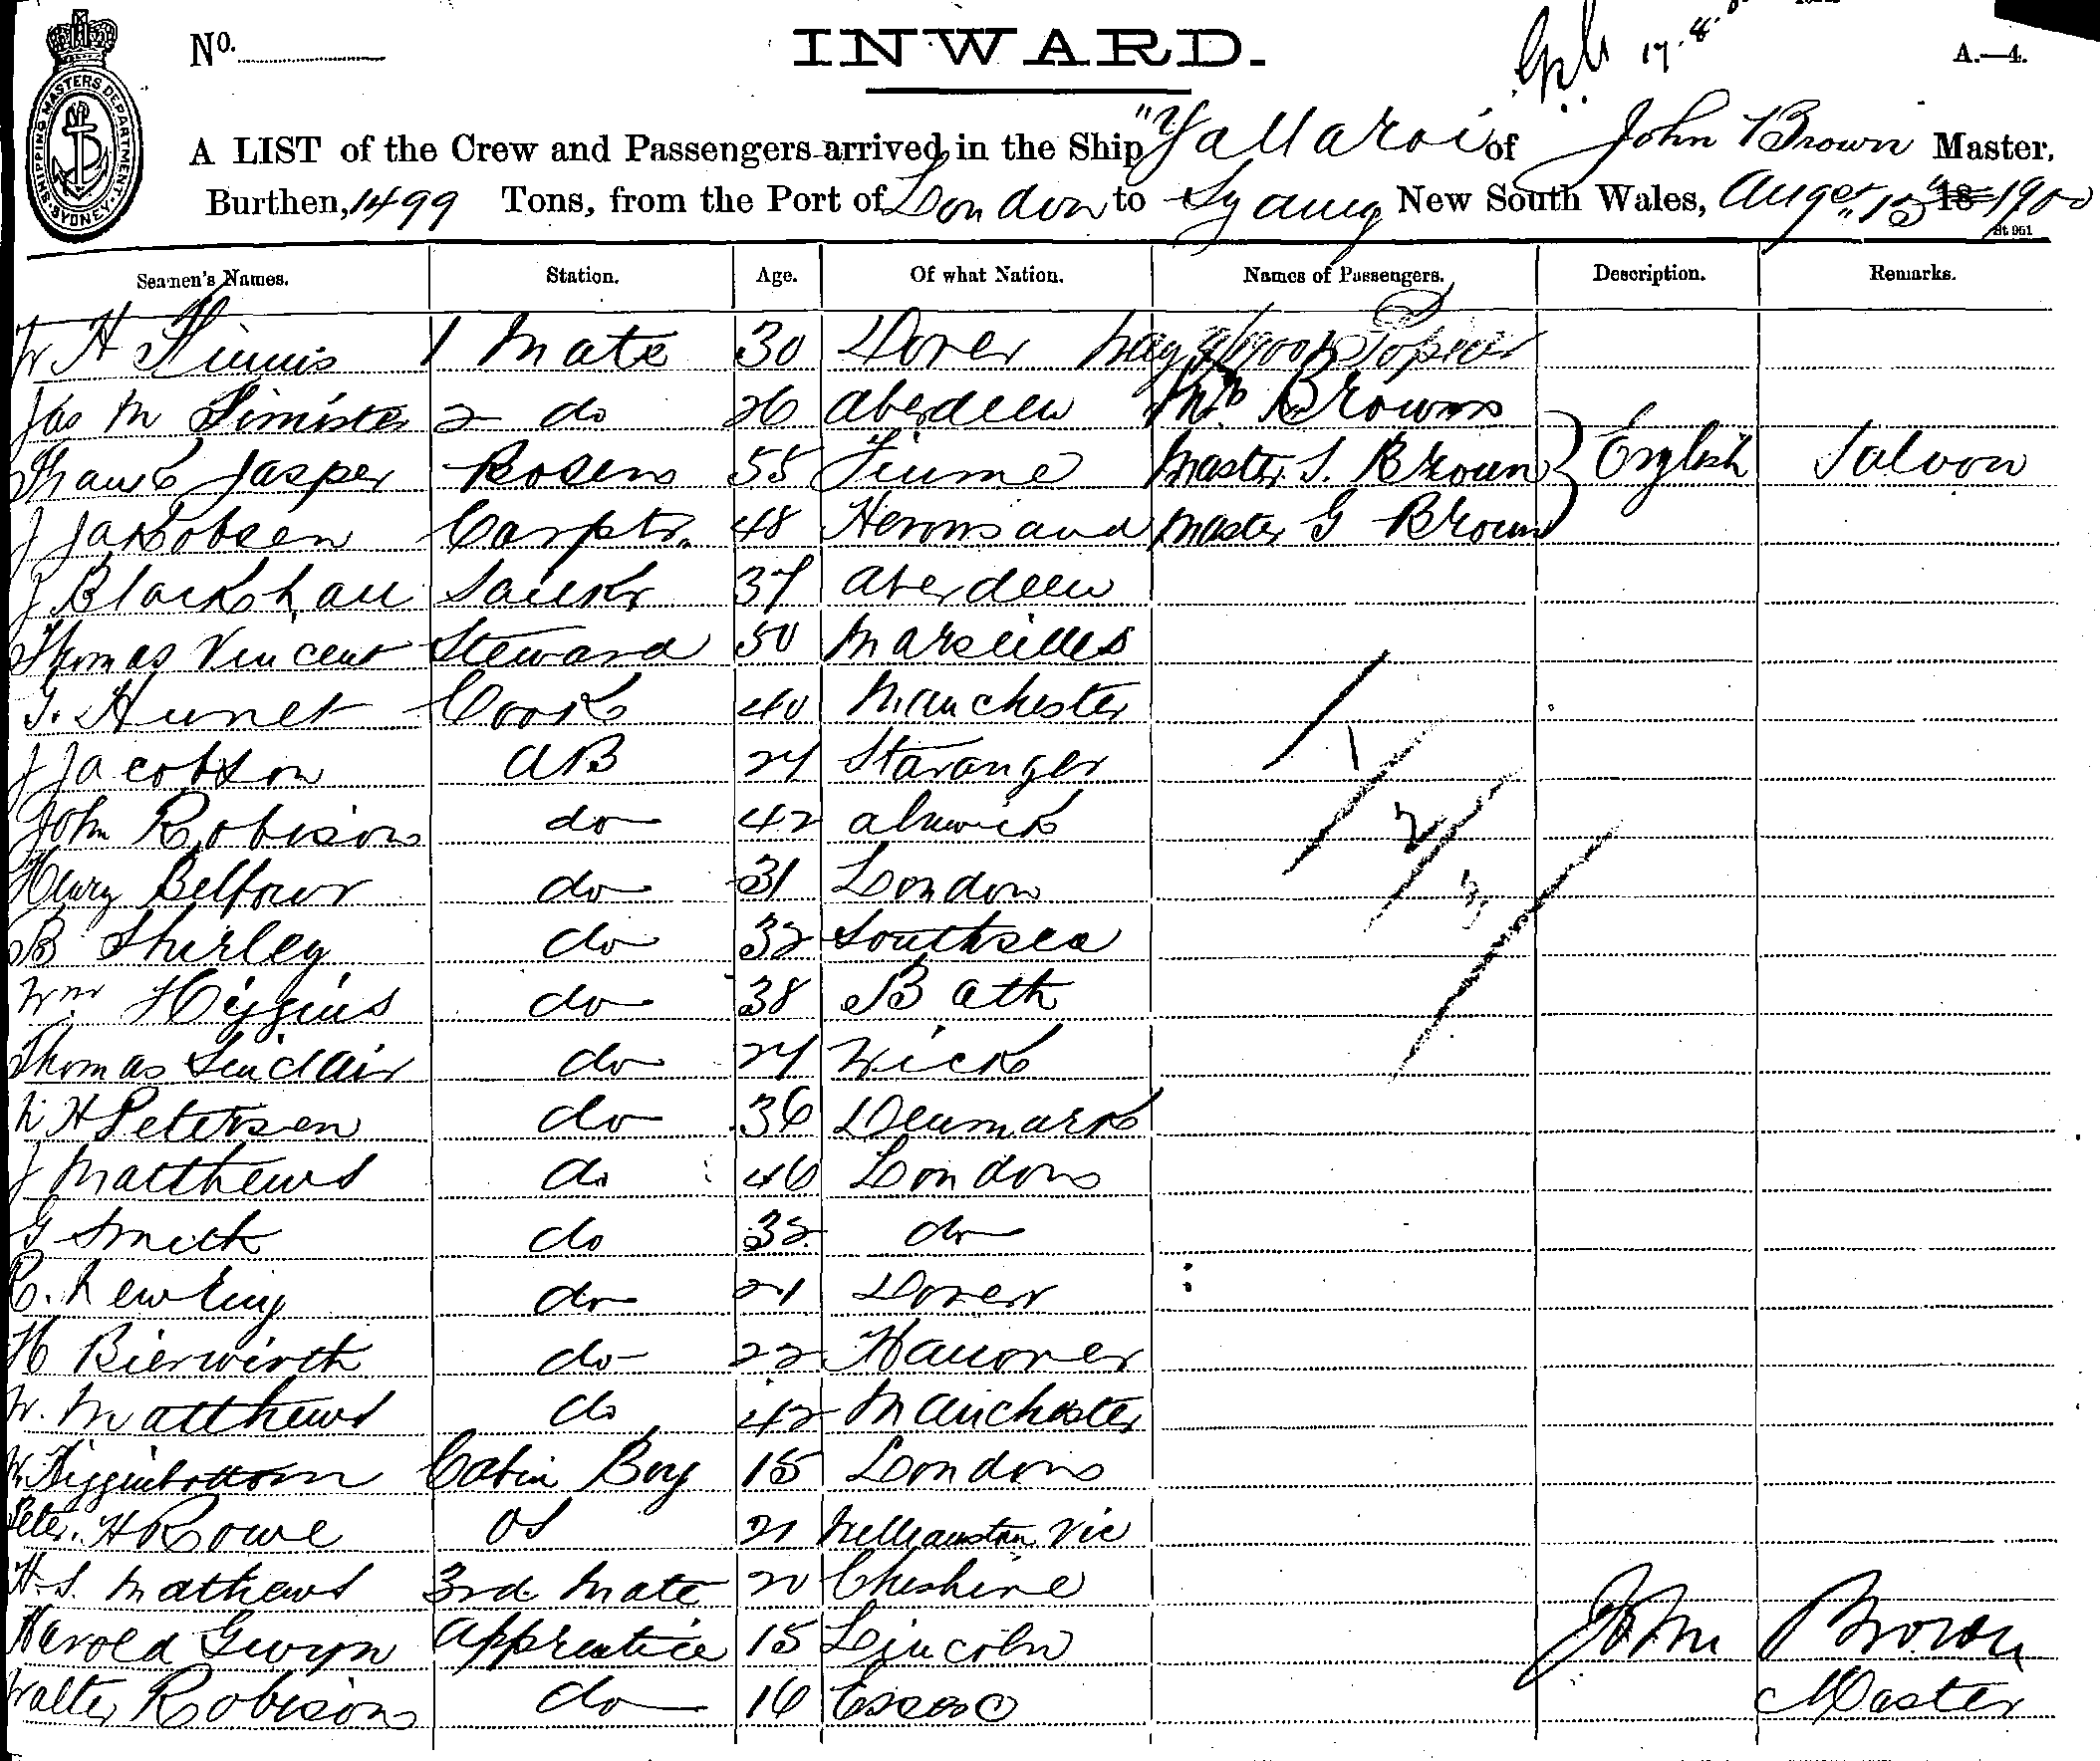 No.
INWARD.
17.4
A.—4.
SHIPPING MASTERS DEPARTMENT. SYDNEY.
A LIST of the Crew and Passengers arrived in the Ship "Yallaroi of John Brown Master,
Burthen, 1499 Tons, from the Port of London to Sydney New South Wales, Augst 15th 18 1900
St 951
Seamen's Names. Station. Age. Of what Nation. Names of Passengers. Description. Remarks.
W H 1 Mate 30 Dover
Jas M Simister 2 do 26 Aberdeen Mrs Brown
Frank Jasper Bosen 55 Fiume Master S. Brown English Saloon
J Jakobsen Carptr. 48 Hernosand Master G Brown
J Blackhall Sailkr 37 Aberdeen
Thomas Vincent Steward 50 Marseilles
T. Hunet Cook 40 Manchester
J Jacobson AB 24 Stavanger
1
John Robison do 42 Alnwick
2
Henry Belfour do 31 London
3
B Shirley do 32 Southsea
Wm Higgins do 38 Bath
Thomas Sinclair do 24 Wick
N H Petersen do 36 Denmark
J Matthews do 46 London
G Smith do 32 do
C. Newling do 21 Dover
H Bierwirth do 22 Hanover
W. Matthews do 42 Manchester
W. Higginbottom Cabin Boy 15 London
Peter. H Rowe OS 21 Williamstown Vic
H. S. Mathews 3rd Mate 20 Cheshire
Harold Gwyn Apprentice 15 Lincoln John Brown
Walter Robison do 16 Essex Master